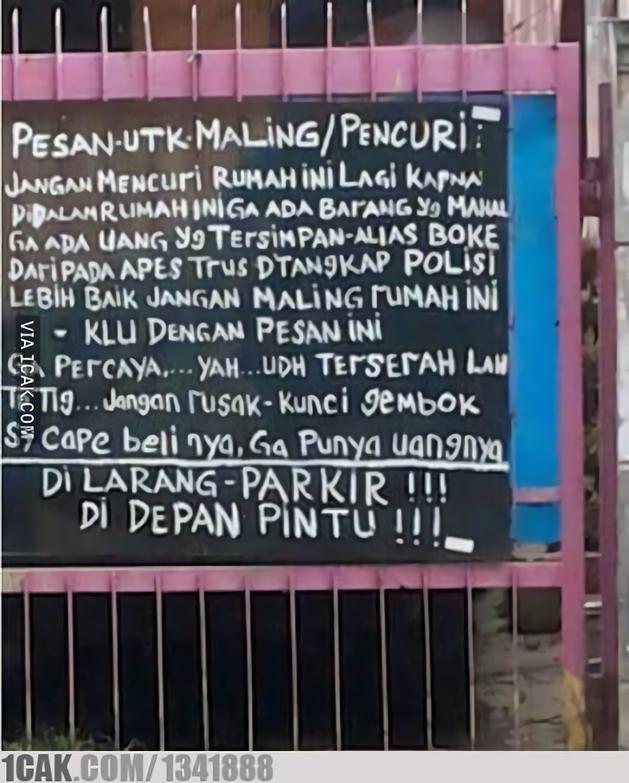 PESAN-UTK-MALING/PENCURI:
JANGAN MENCURI RUMAH INI LAGI KARNA
DIDALAM RUMAH INI GA ADA BARANG Yg MAHAL
GA ADA UANG Yg TERSIMPAN-ALIAS BOKE
DARIPADA APES TrUS DTANgKAP POLISI
LEBIH BAIK JANGAN MALING rUMAH INI
- KLU DENGAN PESAN INI
GA PErCAYA,... YAH...UDH TERSERAH LAH
Jangan rusak-Kunci gembok
Sy Cape beli nya, Ga Punya uangnya
Di LARANG-PARKIR !!!
Di DEPAN PINTU !!!
VIA 1CAK.COM
1CAK.COM/1341888